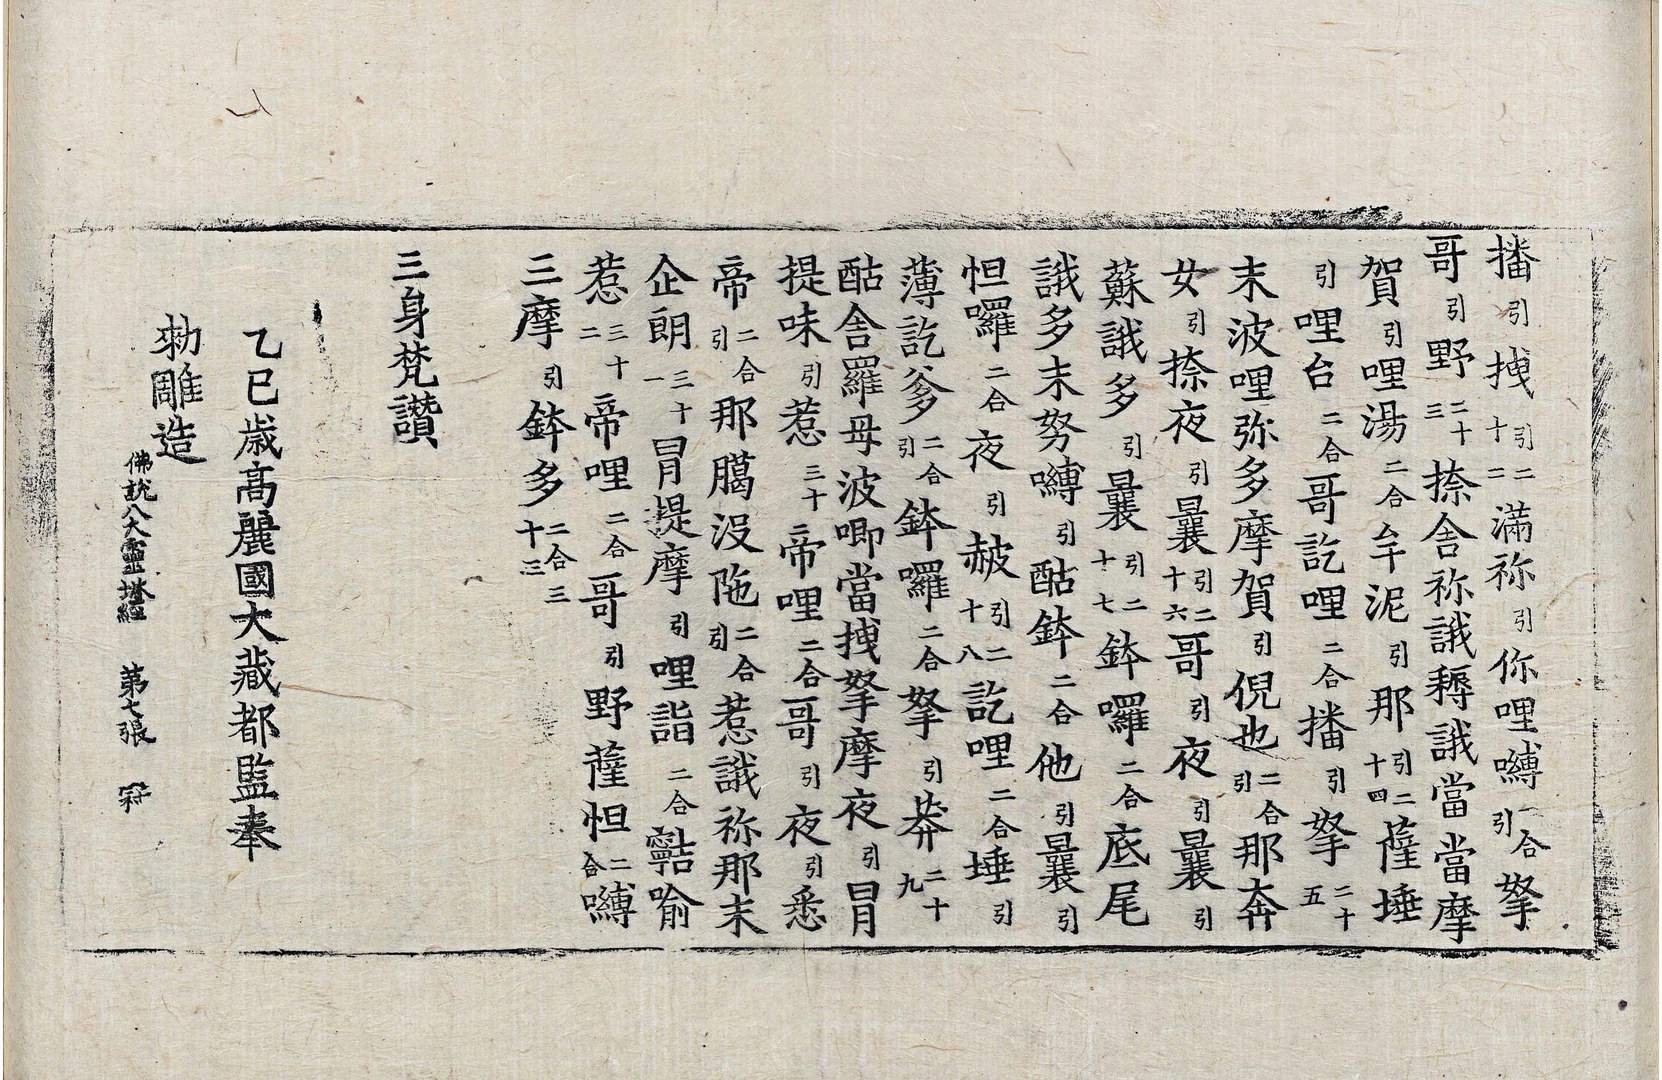 播引拽引二十二滿祢引你哩嚩二合引拏
哥引野二十三捺舍祢誐耨誐當當摩
賀引哩湯二合牟泥引那引二十四薩埵
引哩台二合哥訖哩二合播引拏二十五
末波哩弥多摩賀引倪也二合引那奔
女引捺夜引曩引二十六哥引夜引曩引
蘇誐多引曩引二十七鉢囉二合底尾
誐多末努嚩引酤鉢二合他引曩引
怛囉二合夜引赧引二十八訖哩二合埵引
薄訖爹二合引鉢囉二合拏引莽二十九
酤舍羅毋波唧當拽拏摩夜引冐
提味引惹三十帝哩二合哥引夜引悉
帝二合引那臈沒陁二合引惹誐祢那末
企朗三十一冐提摩引哩詣二合喻
惹三十二帝哩二合哥引野薩怛二合嚩
三摩引鉢多二合三十三
三身梵讚
乙巳歲高麗國大藏都監奉
勑雕造
佛說八大靈塔經 第七張 冠